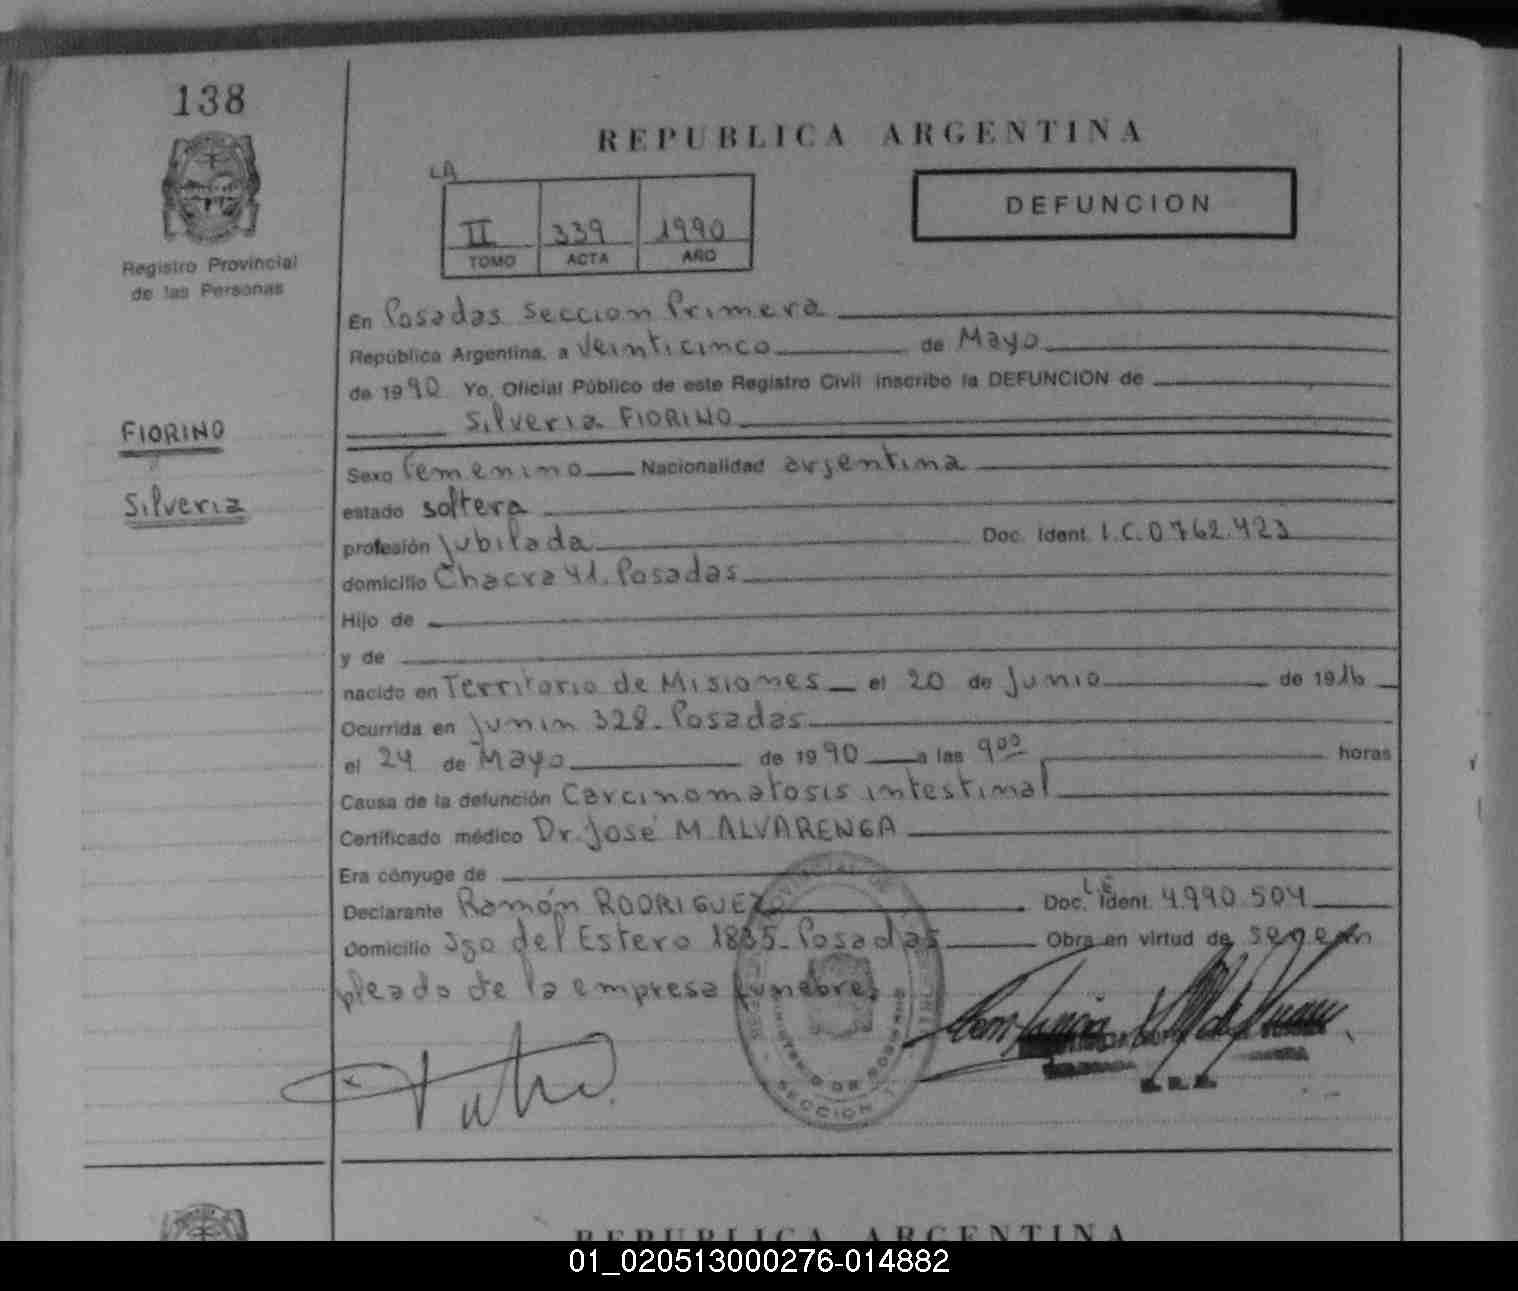 138
REPUBLICA ARGENTINA
LA
II 339 1990
TOMO ACTA AÑO
DEFUNCION
Registro Provincial
de las Personas
En Posadas Seccion Primera
República Argentina, a Veinticinco de Mayo
de 1990 Yo, Oficial Público de este Registro Civil inscribo la DEFUNCION de
Silveria FIORINO
FIORINO
Silveria
Sexo femenino Nacionalidad argentina
estado soltera
profesión jubilada Doc. Ident. L.C. 0.762.423
domicilio Chacra 41. Posadas
Hijo de
y de
nacido en Territorio de Misiones el 20 de Junio de 1916
Ocurrida en Junin 328. Posadas
el 24 de Mayo de 1990 a las 9⁰⁰ horas
Causa de la defunción Carcinomatosis intestinal
Certificado médico Dr. José M. ALVARENGA
Era cónyuge de
Declarante Ramón RODRIGUEZ Doc. L.E. Ident. 4.990.504
Domicilio Sgo del Estero 1835. Posadas Obra en virtud de ser em
pleado de la empresa funebre
SECCION 1
REPUBLICA ARGENTINA
01_020513000276-014882